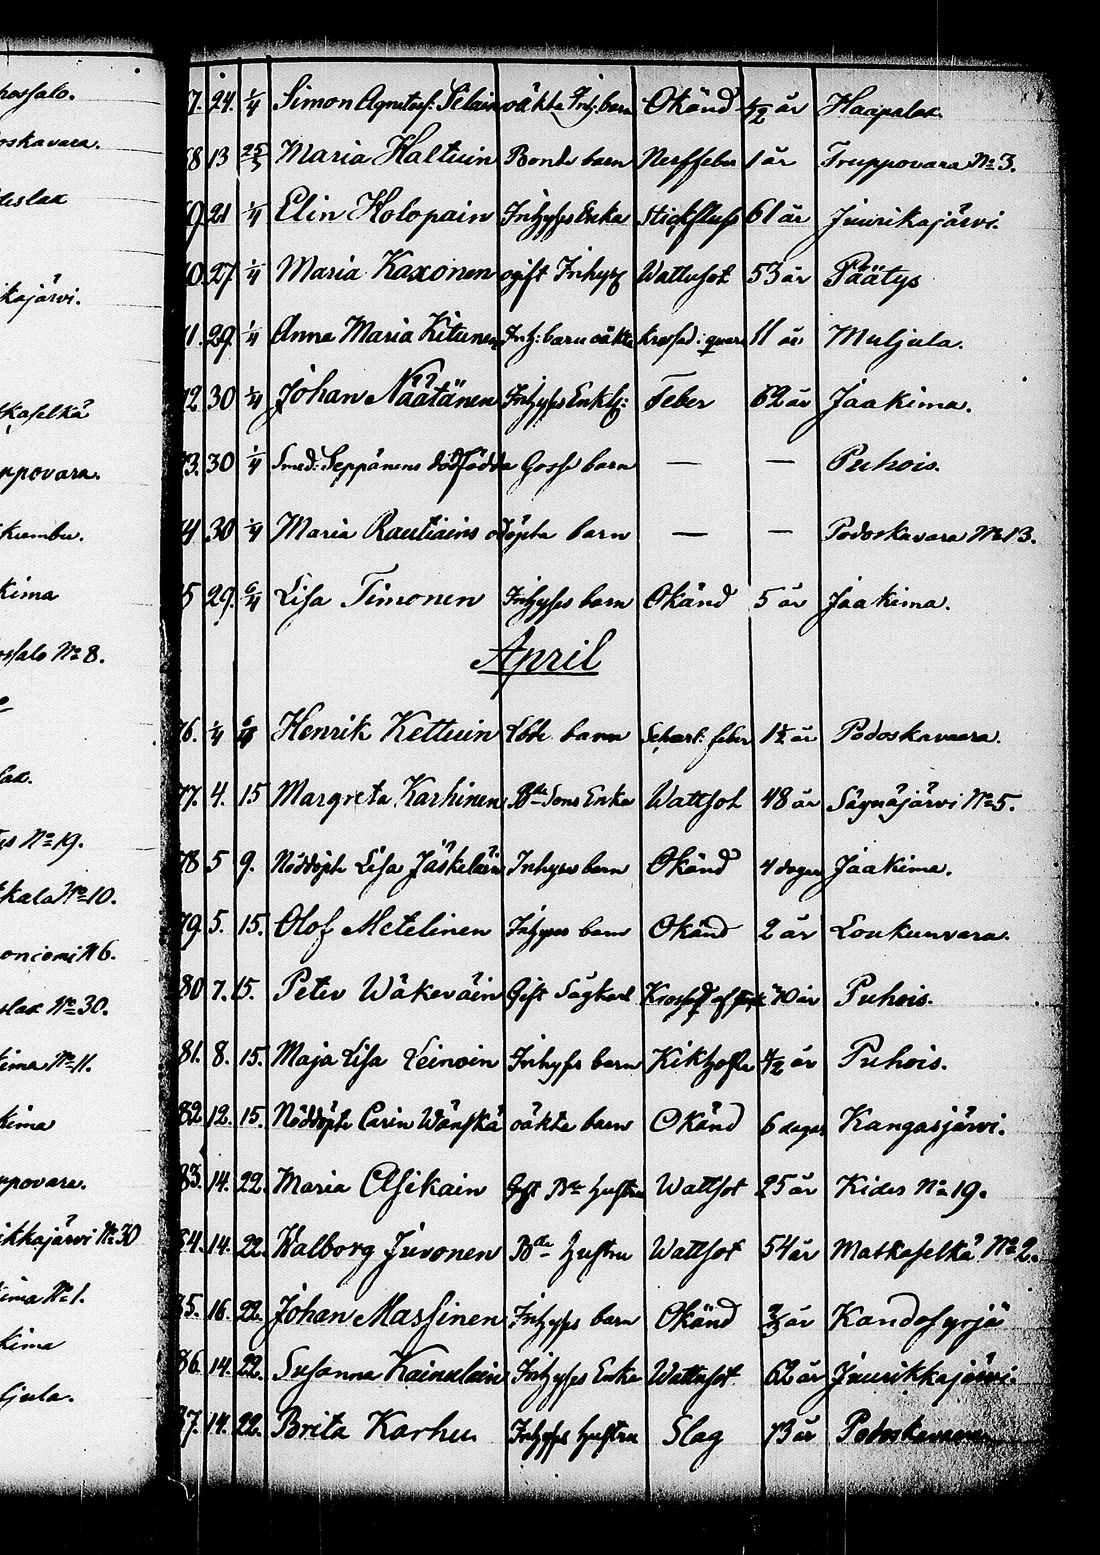 horsalo.
oskavara.
kajärvi.
kaselkä
ppovara.
kumbu.
kima
salo No 8.
lax.
No 19.
kala No 10.
oniemi N 6.
lax No 30.
ima No 11.
kima
ppovara.
ikkajärvi No 30
ima No 1.
kima
ljula.
7. 24. 1/4 Simon oäkta Inh: barn Okänd 1/2 år Haapalax.
68 13 25/3 Maria Haltuin Bonde barn Nerffeber 1 år Truppovara No 3.
69 21 1/4 Elin Holopain Inhyses Enka Stickfluss 61 år Juurikajärvi.
70. 27. 1/4 Maria Kaxonen ogift Inhys Wattusot 53 år Päätys
71. 29. 1/4 Anna Maria Kitunen Inh: barn oäkta krossad i quarn 11 år Muljula.
72 30 1/4 Johan Näätänen Inhyses Enkl: Feber 62 år Jaakima.
73. 30 1/4 Smed: Seppänens dödfödda Gosse barn — — Puhois.
74 30 1/4 Maria Rautiains odöpta barn — — Podoskavara No 13.
75 29. 6/4 Lisa Timonen Inhyses barn Okänd 5 år Jaakima.
April
76. 1/4 Henrik Kettuin barn Scharl: feber 1 1/2 år Podoskavaara.
77. 4. 15 Margreta Karhinen Bde Sons Enka Wattsot 48 år Sägnäjärvi No 5.
78 5 9. Nöddöpte Lisa Jäskeläin Inhyses barn Okänd 4 dagar Jaakima.
79. 5. 15. Olof Metelinen Inhyses barn Okänd 2 år Loukunvara.
80 7. 15. Peter Wäkeväin Gift Sågkarl Krossad af 40 år Puhois.
81. 8. 15. Maja Lisa Leinoin Inhyses barn Kikhosta 1/2 år Puhois.
82 12. 15. Nöddöpte Carin Wänskä oäkta barn Okänd 6 dagar Kangasjärvi.
83. 14. 22. Maria Asikain Gift Bde hustru Wattsot 25 år Kides No 19.
84. 14. 22. Walborg Juvonen Bde hustru Wattsot 54 år Matkaselkä No 2.
85. 16. 22. Johan Massinen Inhyses barn Okänd år
86. 14. 22. Susanna Kainulain Inhyses Enka Wattusot 62 år Juurikkajärvi.
87. 14. 22. Brita Karhu Inhyses hustru Slag 73 år Podoskavaara